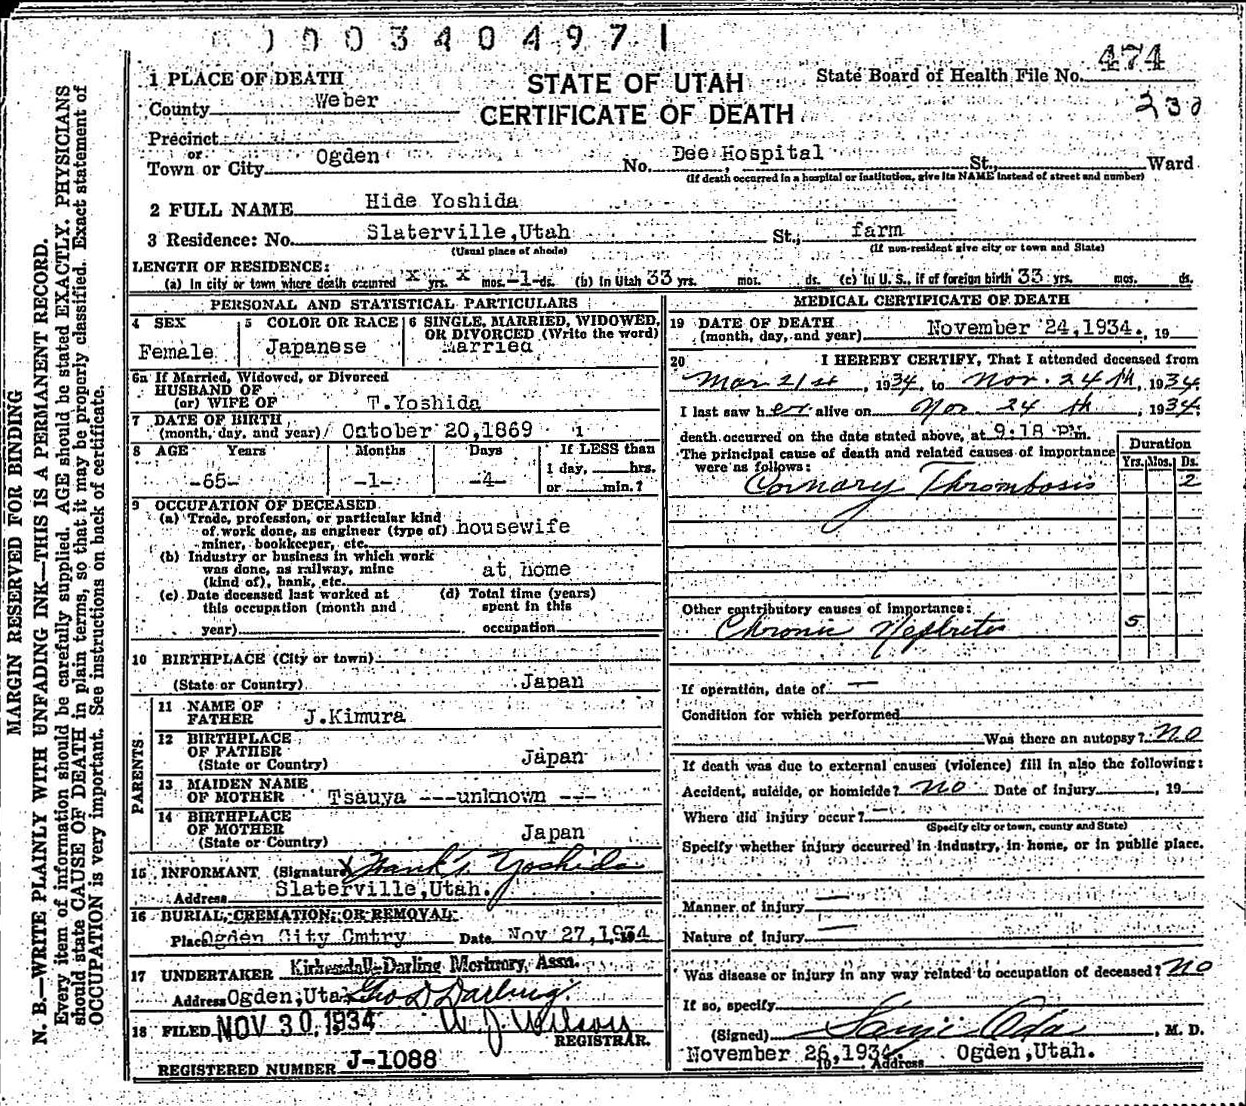 0003404971
1 PLACE OF DEATH
STATE OF UTAH
CERTIFICATE OF DEATH
State Board of Health File No. 474
230
County Weber
Precinct
or
Town or City Ogden No. Dee Hospital St., Ward
(If death occurred in a hospital or institution, give its NAME instead of street and number)
2 FULL NAME Hide Yoshida
3 Residence: No. Slaterville,Utah St., farm
(Usual place of abode) (If non-resident give city or town and State)
LENGTH OF RESIDENCE:
(a) In city or town where death occurred x yrs. x mos. -1- ds. (b) In Utah 33 yrs. mos. ds. (c) In U. S., if of foreign birth 33 yrs. mos. ds.
PERSONAL AND STATISTICAL PARTICULARS
4 SEX
Female
5 COLOR OR RACE
Japanese
6 SINGLE, MARRIED, WIDOWED,
OR DIVORCED (Write the word)
Married
6a If Married, Widowed, or Divorced
HUSBAND OF
(or) WIFE OF T.Yoshida
7 DATE OF BIRTH
(month, day, and year) October 20,1869
8 AGE Years Months Days If LESS than
1 day, hrs.
-65- -1- -4- or min.?
9 OCCUPATION OF DECEASED
(a) Trade, profession, or particular kind
of work done, as engineer (type of) housewife
miner, bookkeeper, etc.
(b) Industry or business in which work
was done, as railway, mine at home
(kind of), bank, etc.
(c) Date deceased last worked at (d) Total time (years)
this occupation (month and spent in this
year) occupation
10 BIRTHPLACE (City or town)
(State or Country) Japan
PARENTS
11 NAME OF
FATHER J.Kimura
12 BIRTHPLACE
OF FATHER Japan
(State or Country)
13 MAIDEN NAME
OF MOTHER Tsauya ---unknown ---
14 BIRTHPLACE
OF MOTHER Japan
(State or Country)
15 INFORMANT (Signature) X Frank T. Yoshida
Address Slaterville,Utah.
16 BURIAL, CREMATION, OR REMOVAL
Place Ogden City Cmtry Date Nov 27,1934
17 UNDERTAKER Kirkendall-Darling Mortuary, Assn.
Address Ogden,Utah Geo D Darling.
18 FILED NOV 30, 1934 W J Wilson
REGISTRAR.
REGISTERED NUMBER J-1088
MEDICAL CERTIFICATE OF DEATH
19 DATE OF DEATH
(month, day, and year) November 24,1934. , 19
20 I HEREBY CERTIFY, That I attended deceased from
Mar 21st , 1934, to Nov. 24th , 1934.
I last saw her alive on Nov 24th , 1934.
death occurred on the date stated above, at 9:18 P.m.
The principal cause of death and related causes of importance
were as follows:
Duration
Yrs. Mos. Ds.
Cornary Thrombosis 2
Other contributory causes of importance:
Chronic Nephritis 5
If operation, date of —
Condition for which performed
Was there an autopsy? No
If death was due to external causes (violence) fill in also the following:
Accident, suicide, or homicide? No Date of injury , 19
Where did injury occur? —
(Specify city or town, county and State)
Specify whether injury occurred in industry, in home, or in public place.
Manner of injury —
Nature of Injury —
Was disease or injury in any way related to occupation of deceased? No
If so, specify
(Signed) Oda , M. D.
November 26,1934. 19 Address Ogden,Utah.
MARGIN RESERVED FOR BINDING
N. B.—WRITE PLAINLY WITH UNFADING INK—THIS IS A PERMANENT RECORD.
Every item of information should be carefully supplied. AGE should be stated EXACTLY. PHYSICIANS
should state CAUSE OF DEATH in plain terms, so that it may be properly classified. Exact statement of
OCCUPATION is very important. See instructions on back of certificate.